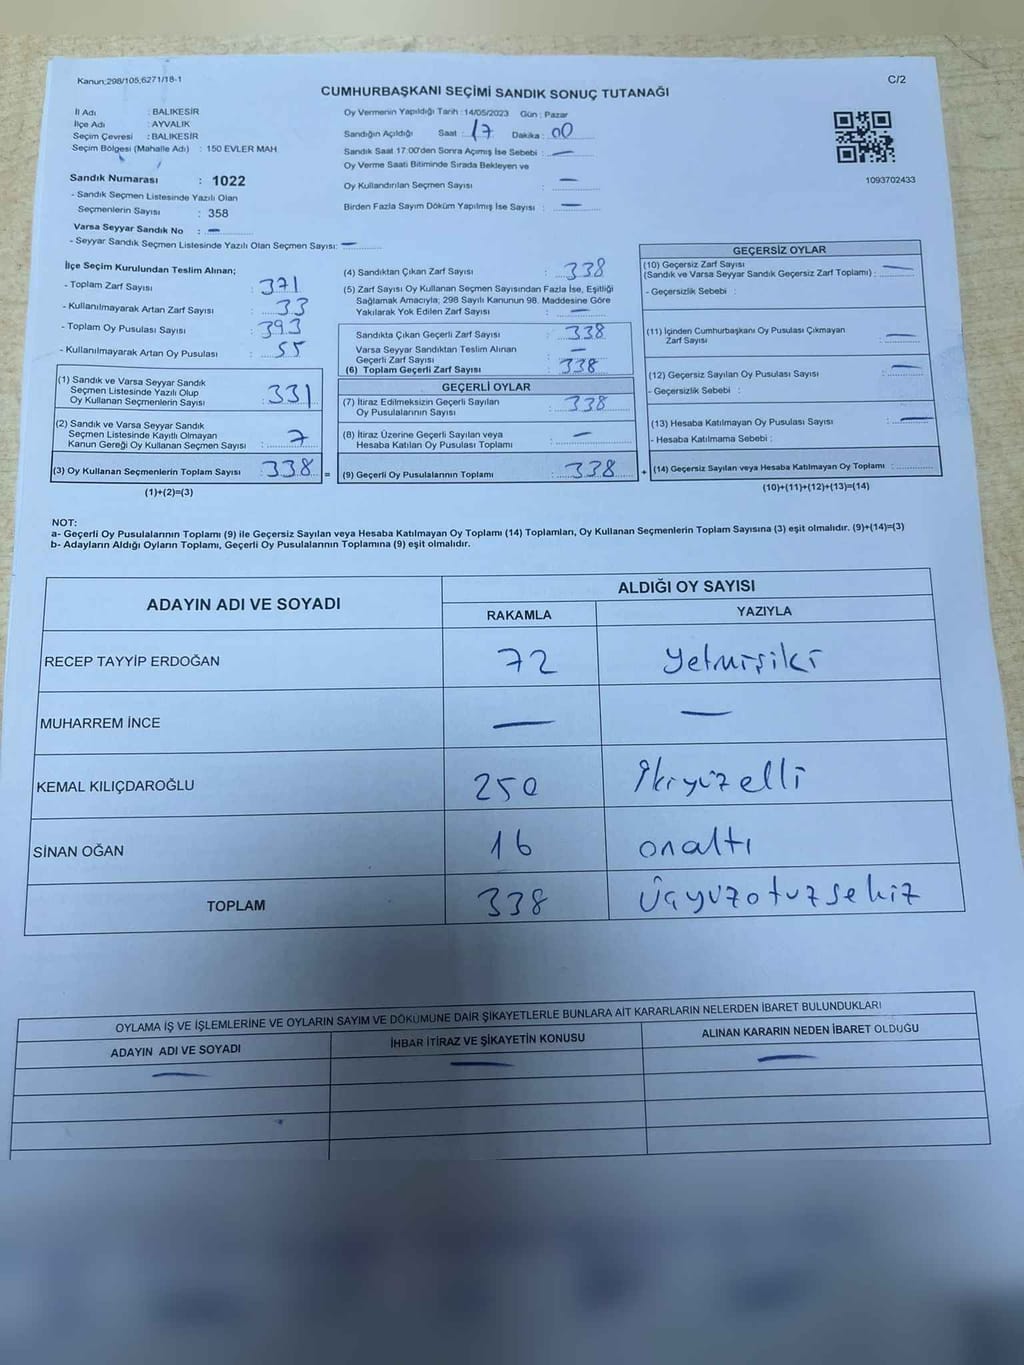 Kanun:298/105,6271/18-1
C/2
CUMHURBAŞKANI SEÇİMİ SANDIK SONUÇ TUTANAĞI
İl Adı : BALIKESİR
İlçe Adı : AYVALIK
Seçim Çevresi : BALIKESİR
Seçim Bölgesi (Mahalle Adı) : 150 EVLER MAH.
Oy Vermenin Yapıldığı Tarih :14/05/2023 Gün : Pazar
Sandığın Açıldığı Saat : 17 Dakika : 00
Sandık Saat 17:00'den Sonra Açımış İse Sebebi : —
Oy Verme Saati Bitiminde Sırada Bekleyen ve
Oy Kullandırılan Seçmen Sayısı : —
Birden Fazla Sayım Döküm Yapılmış İse Sayısı : —
1093702433
Sandık Numarası : 1022
- Sandık Seçmen Listesinde Yazılı Olan
Seçmenlerin Sayısı : 358
Varsa Seyyar Sandık No : —
- Seyyar Sandık Seçmen Listesinde Yazılı Olan Seçmen Sayısı: —
İlçe Seçim Kurulundan Teslim Alınan;
- Toplam Zarf Sayısı : 371
- Kullanılmayarak Artan Zarf Sayısı : 33
- Toplam Oy Pusulası Sayısı : 393
- Kullanılmayarak Artan Oy Pusulası : 55
(1) Sandık ve Varsa Seyyar Sandık
Seçmen Listesinde Yazılı Olup
Oy Kullanan Seçmenlerin Sayısı : 331
(2) Sandık ve Varsa Seyyar Sandık
Seçmen Listesinde Kayıtlı Olmayan
Kanun Gereği Oy Kullanan Seçmen Sayısı : 7
(3) Oy Kullanan Seçmenlerin Toplam Sayısı 338 =
(1)+(2)=(3)
(4) Sandıktan Çıkan Zarf Sayısı : 338
(5) Zarf Sayısı Oy Kullanan Seçmen Sayısından Fazla İse, Eşitliği
Sağlamak Amacıyla; 298 Sayılı Kanunun 98. Maddesine Göre
Yakılarak Yok Edilen Zarf Sayısı : —
Sandıkta Çıkan Geçerli Zarf Sayısı : 338
Varsa Seyyar Sandıktan Teslim Alınan
Geçerli Zarf Sayısı : —
(6) Toplam Geçerli Zarf Sayısı : 338
GEÇERLİ OYLAR
(7) İtiraz Edilmeksizin Geçerli Sayılan
Oy Pusulalarının Sayısı : 338
(8) İtiraz Üzerine Geçerli Sayılan veya
Hesaba Katılan Oy Pusulası Toplamı : —
(9) Geçerli Oy Pusulalarının Toplamı : 338 +
GEÇERSİZ OYLAR
(10) Geçersiz Zarf Sayısı
(Sandık ve Varsa Seyyar Sandık Geçersiz Zarf Toplamı) : —
- Geçersizlik Sebebi :
(11) İçinden Cumhurbaşkanı Oy Pusulası Çıkmayan
Zarf Sayısı : —
(12) Geçersiz Sayılan Oy Pusulası Sayısı : —
- Geçersizlik Sebebi :
(13) Hesaba Katılmayan Oy Pusulası Sayısı : —
- Hesaba Katılmama Sebebi :
(14) Geçersiz Sayılan veya Hesaba Katılmayan Oy Toplamı :
(10)+(11)+(12)+(13)=(14)
NOT:
a- Geçerli Oy Pusulalarının Toplamı (9) ile Geçersiz Sayılan veya Hesaba Katılmayan Oy Toplamı (14) Toplamları, Oy Kullanan Seçmenlerin Toplam Sayısına (3) eşit olmalıdır. (9)+(14)=(3)
b- Adayların Aldığı Oyların Toplamı, Geçerli Oy Pusulalarının Toplamına (9) eşit olmalıdır.
ADAYIN ADI VE SOYADI
ALDIĞI OY SAYISI
RAKAMLA YAZIYLA
RECEP TAYYİP ERDOĞAN 72 Yetmişiki
MUHARREM İNCE — —
KEMAL KILIÇDAROĞLU 250 İkiyüzelli
SİNAN OĞAN 16 onaltı
TOPLAM 338 Üçyüzotuzsekiz
OYLAMA İŞ VE İŞLEMLERİNE VE OYLARIN SAYIM VE DÖKÜMÜNE DAİR ŞİKAYETLERLE BUNLARA AİT KARARLARIN NELERDEN İBARET BULUNDUKLARI
ADAYIN ADI VE SOYADI İHBAR İTİRAZ VE ŞİKAYETİN KONUSU ALINAN KARARIN NEDEN İBARET OLDUĞU
— — —